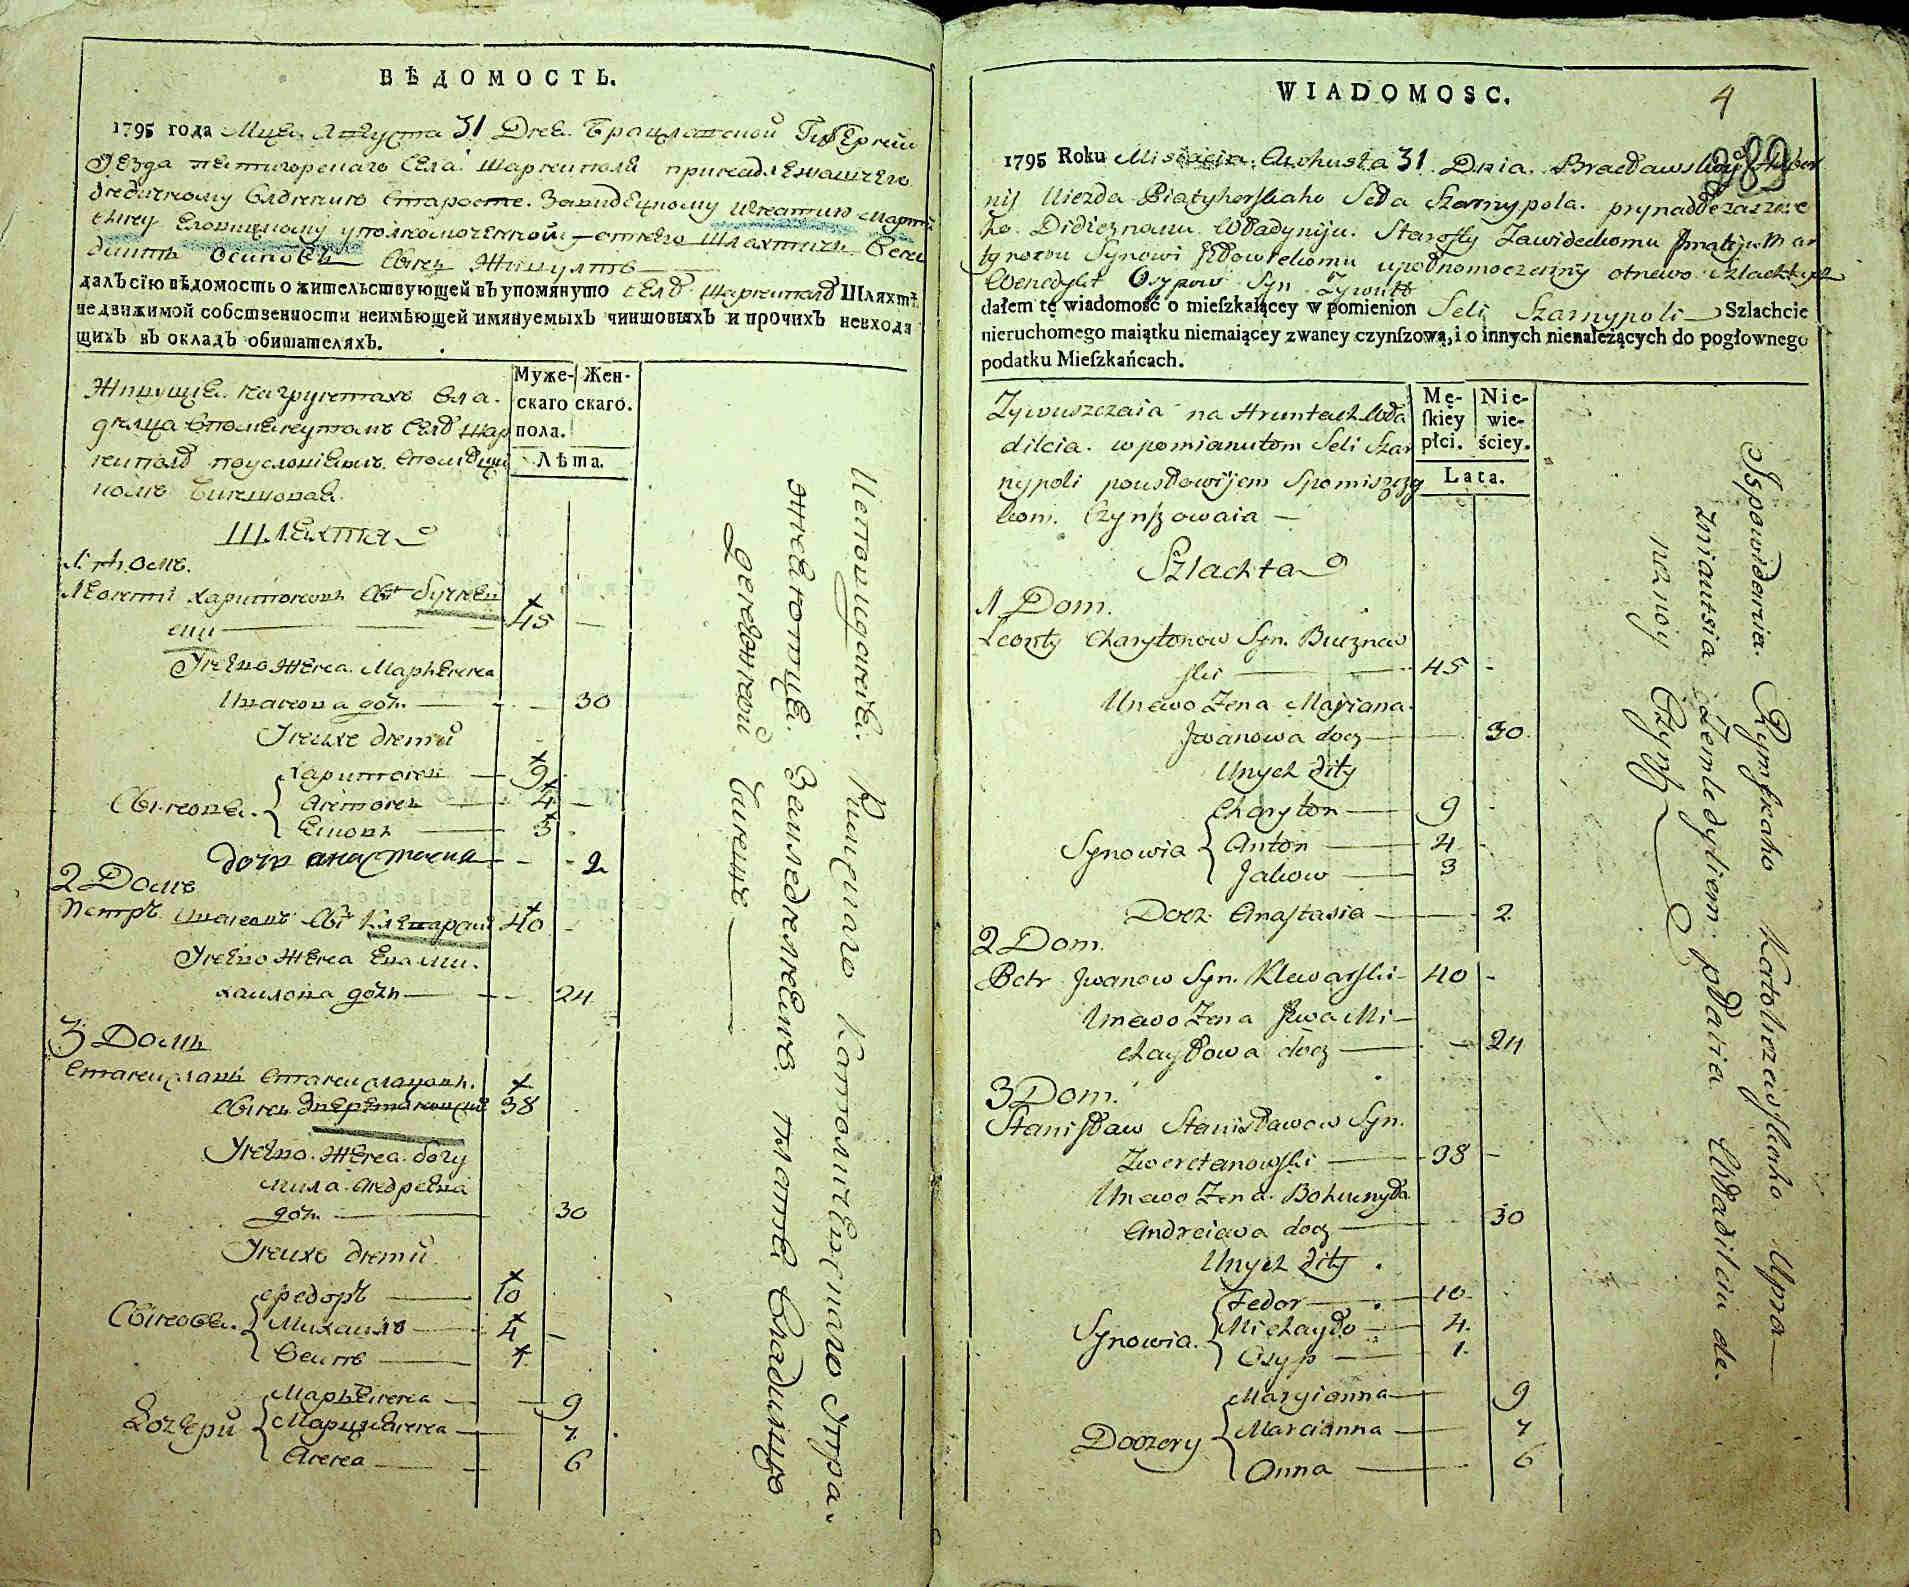 ВѢДОМОСТЬ.
1795 года Мца Августа 31 Дня. Брацлавской Губернии
уезда пятигорскаго села Шарниполя принадлежащего
дедичному владению старосте. Завидецкому Игнатию Марти
сину уполномоченной от него Шляхтич Вене
диктъ Осиповъ сынъ Живултъ
далъ сію вѣдомость о жительствующей въ упомянуто селѣ Шарниполѣ Шляхтѣ
недвижимой собственности неимѣющей имянуемыхъ чиншовыхъ и прочихъ невходя
щихъ въ окладъ обитателяхъ.
Живуще. на грунтахъ вла.
делца впомянутомъ селѣ Шар
ниполѣ поусловіемъ споміщи
комъ Чиншовая.
Муже-
скаго
пола.
Жен-
скаго.
Лѣта.
Шляхта
1. Домъ.
Леонтий Харитоновъ сынъ Бучнев
ски 45
У него жена Марьянна
Иванова дочь 30
У нихъ дети
Сыновья.
Харитонъ 9
Антонъ 4
Яковъ 3
дочь анастасия 2
2 Домъ
Петръ Ивановъ сынъ Клеварски 40
У него жена Ева Ми.
хаилова дочь 24
3 Домъ
Станиславъ Станиславовъ.
сынъ Зверетановски 38
У него. жена. богу
мила. андреева
дочь 30
У нихъ дети
Сыновья.
Федоръ 10
Михаило 4
Осипъ 1
Дочери
Марьянна 9
Марцианна 7
Анна 6
Исповидания. Римскаго Католическаго Упра-
жняютца. Земледелиемъ платя Владилцу
денежной Чиншъ
WIADOMOSC.
4
382
1795 Roku Misiacia Awhusta 31. Dnia. Bracławskoy Huber
nij Uiezda Piatyhorskaho Seła Szarnypola. prynadłezaszcze
ho. Didicznomu Władyniju. Starosty Zawideckomu Jhnatiju Mar
tynowu Synowi upołnomoczenny otnewo Szlachtycz
Wenedykt Osypow Syn Zywułt
dałem tę wiadomość o mieſzkaiącey w pomienion Seli Szarnypoli Szlachcie
nieruchomego maiątku niemaiącey zwaney czynſzową, i o innych nienależących do pogłownego
podatku Mieſzkańcach.
Zywuszczaia na Hruntach Wła
dilcia. w pomianutom Seli Szar
nypoli pousłowijem Spomiszczy
kom. Czynszowaia
Mę-
ſkiey
płci.
Nie-
wie-
ściey.
Lata.
Szlachta
1 Dom.
Leonty Charytonow Syn. Bucznew
ski 45
Unewo Zena Maryiana
Jwanowa docz 30
Unych dity
Synowia
Charyton 9
Anton 4
Jakow 3
Docz Anastasia 2
2 Dom.
Petr Jwanow Syn. Klewarski 40
Unewo Zena Jewa Mi-
chayłowa docz 24
3 Dom.
Stanisław Stanisławow Syn.
Zweretanowski 38
Unewo Zena. Bohumyła
Andreiewa docz 30
Unych dity
Synowia.
Fedor 10
Michayło 4
Osyp 1
Doczery
Maryianna 9
Marcianna 7
Onna 6
Jspowidania. Rymskaho Katoliczeskaho Upra-
zniaiutsia. Zemledyliem płatia Władilciu de-
neznoy Czynsz